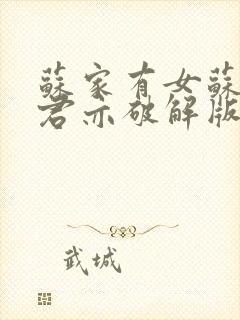 蘇家有女蘇
君亦破解版
武城